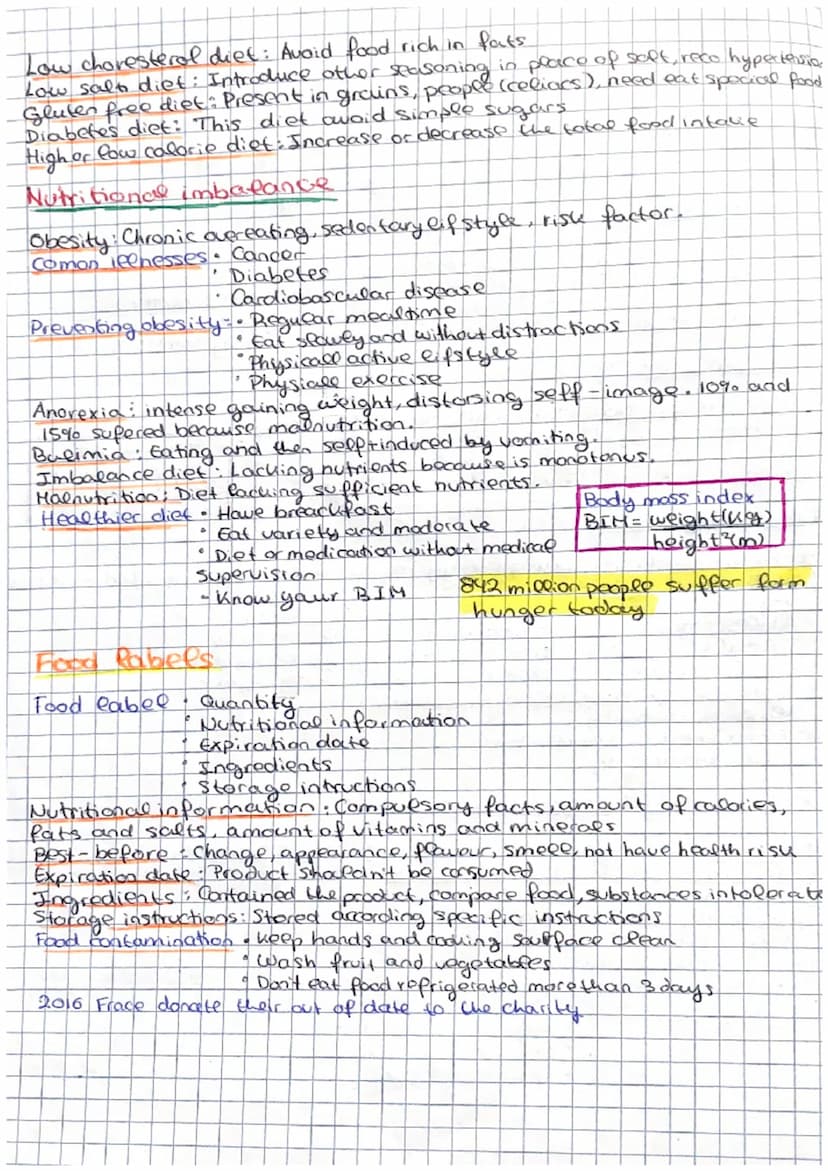 Low choresterol diet: Avoid food rich in fats
Low salt diet: Introduce other seasoning in place of salt, reco hypertensio
Gluten free diet: Present in grains, people (celiacs), need eat special food
Diabetes diet: This diet avoid simple sugars
High or low calorie diet: Increase or decrease the total food intake
Nutritional imbalance
Obesity: Chronic overeating, sedentary lifstyle, risk factor.
Comon illnesses • Cancer
• Diabetes
• Cardiobascular disease
Preventing obesity: • Regular mealtime
• Eat slowly and without distractions
• Physicall active lifstyle
• Physiall exercise
Anorexia: intense gaining weight, distorsing self-image. 10% and
15% supered because malnutrition.
Bulimia: Eating and then selftinduced by vomiting.
Imbalance diet: Lacking nutrients because is monotonus.
Malnutrition: Diet lacking sufficient nutrients.
Healthier diet • Have breackfast
• Eat variety and moderate
• Diet or medication without medical
supervision
- Know your BIM
Body mass index
BIM = weight(kg)
height²(m)
842 million people suffer form
hunger today
Food labels
Food label • Quantity
• Nutritional information
• Expiration date
• Ingredients
• Storage intructions
Nutritional information: Compulsory facts, amount of calories,
fats and salts, amount of vitamins and minerals
Best-before: Change, appearance, flavour, smell, not have health risk
Expiration date: Product shouldn't be consumed
Ingredients: Contained the product, compare food, substances intolerate
Storage instructions: Stored according specific instructions
Food contamination • Keep hands and cooking surfface clean
• Wash fruit and vegetables
• Don't eat food refrigerated more than 3 days
2016 Frace donate their out of date to the charity